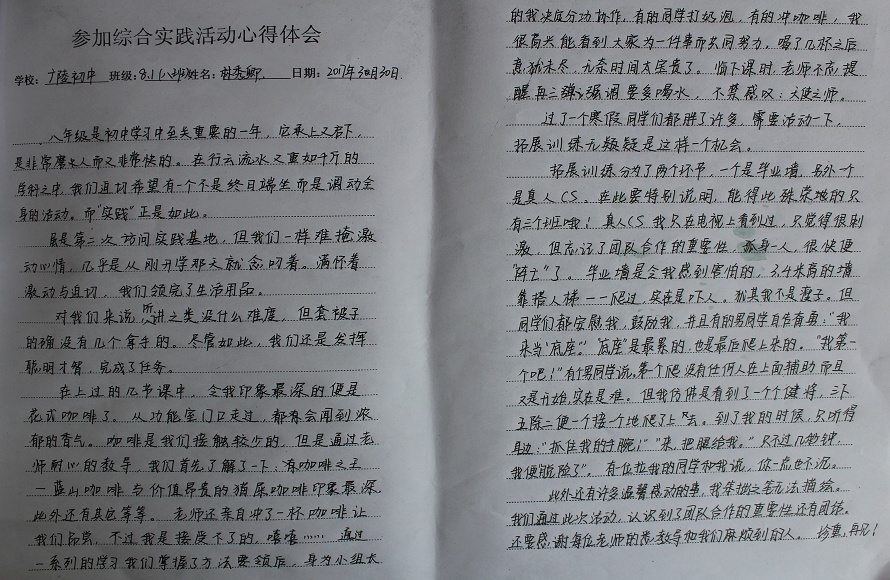 参加综合实践活动心得体会
学校:广陵初中 班级:8.1(八)班 姓名:林秀卿 日期:2017年3月30日
八年级是初中学习中至关重要的一年,它承上又启下,
是非常磨人而又非常快的。在行云流水又重如千斤的
学科之中,我们迫切希望有一个不是终日端坐而是调动全
身的活动。而“实践”正是如此。
虽是第二次访问实践基地,但我们一样难掩激
动心情,几乎是从刚开学那天就念叨着。满怀着
激动与迫切,我们领完了生活用品。
对我们来说听讲之类没什么难度,但套被子
的确没有几个拿手的。尽管如此,我们还是发挥
聪明才智,完成了任务。
在上过的几节课中,令我印象最深的便是
花式咖啡了。从功能室门口走过,都有会闻到浓
郁的香气。咖啡是我们接触较少的,但是通过老
师耐心的教导,我们首先了解了一下:有咖啡之王
—蓝山咖啡与价值昂贵的猫屎咖啡印象最深。
此外还有其它等等。老师还亲自冲了一杯咖啡让
我们品尝,不过我是接受不了的,嘻嘻……通过
一系列的学习我们掌握了方法要领后,身为小组长
的我决定分功协作,有的同学打奶泡,有的冲咖啡,我
很高兴能看到大家为一件事而共同努力,喝了几杯之后
意犹未尽,无奈时间太宝贵了。临下课时,老师不忘提
醒再三强调要多喝水,不禁感叹:天使之师。
过了一个寒假同学们都胖了许多,需要活动一下,
拓展训练无疑是这样一个机会。
拓展训练分为了两个环节,一个是毕业墙,另外一个
是真人CS。在此要特别说明,能得此殊荣地的只
有三个班哦!真人CS我只在电视上看到过,只觉得很刺
激,但忘记了团队合作的重要性,孤身一人,很快便
“阵亡”了。毕业墙是令我感到害怕的,3.4米高的墙
靠搭人梯一一爬过,实在是吓人。尤其我不是瘦子。但
同学们都安慰我,鼓励我,并且有的男同学自告奋勇:“我
来当‘底座’。”“底座”是最累的,也是最后爬上来的。“我第一
个吧!”有个男同学说,第一个爬没有任何人在上面辅助而且
又是开始,实在是难。但我仿佛是看到了一个个健将,三下
五除二便一个接一个地爬了上去。到了我的时候,只听得
身边:“抓住我的手腕!”“来,把腿给我。”只不过几秒钟,
我便脱险了”。有位拉我的同学和我说,你一点也不沉。
此外还有许多温馨感动的事,我笨拙之笔无法描绘。
我们通过此次活动,认识到了团队合作的重要性还有团结。
还要感谢每位老师的教导和我们麻烦到的人。珍重,再见!